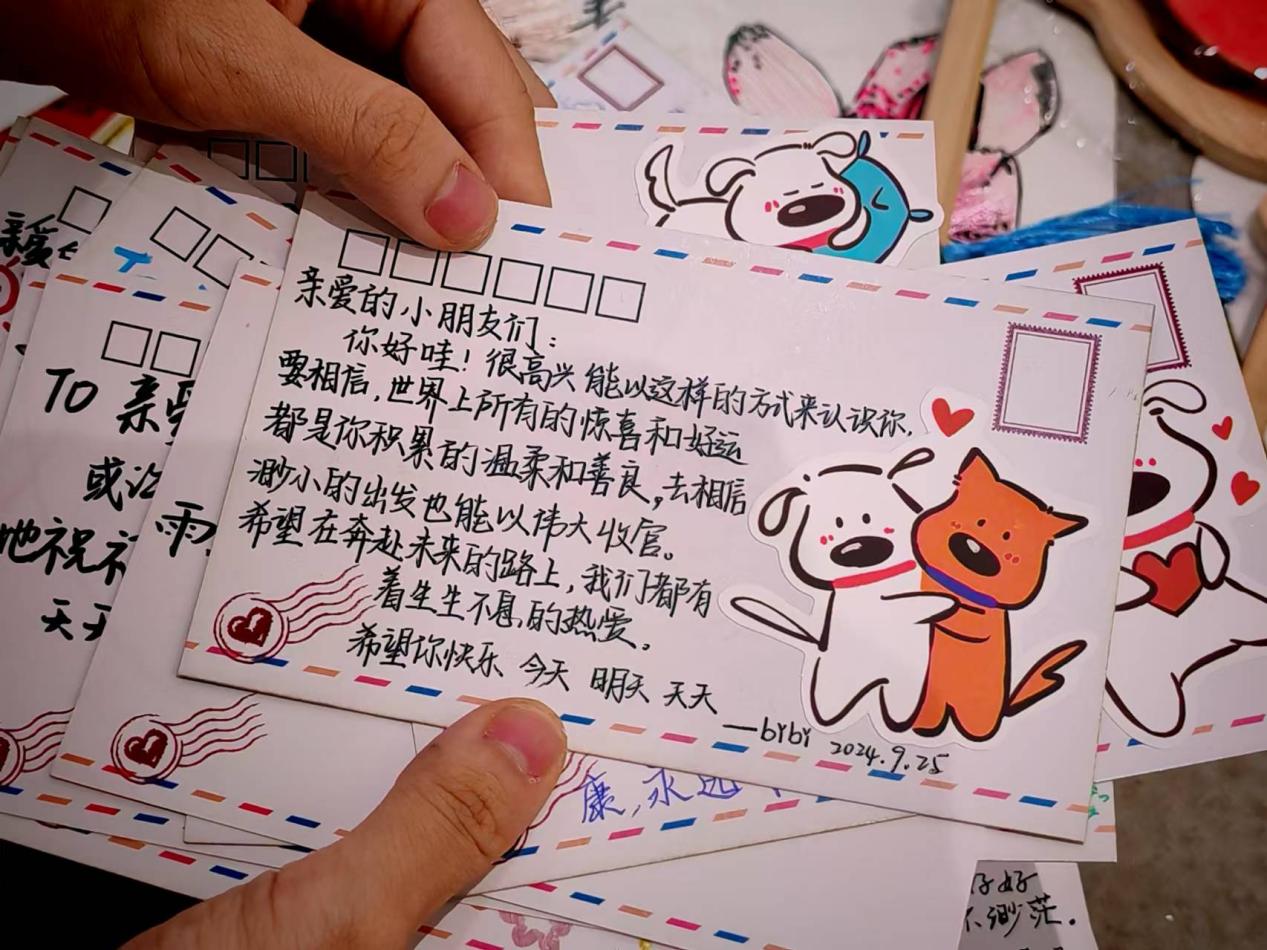 亲爱的小朋友们：
你好哇！很高兴能以这样的方式来认识你.
要相信,世界上所有的惊喜和好运
都是你积累的温柔和善良,去相信
渺小的出发也能以伟大收官。
希望在奔赴未来的路上,我们都有
着生生不息的热爱。
希望你快乐 今天 明天 天天
—bibi 2024.9.25
TO 亲
或
她祝
天天
雨
康,永远
好
渺茫.